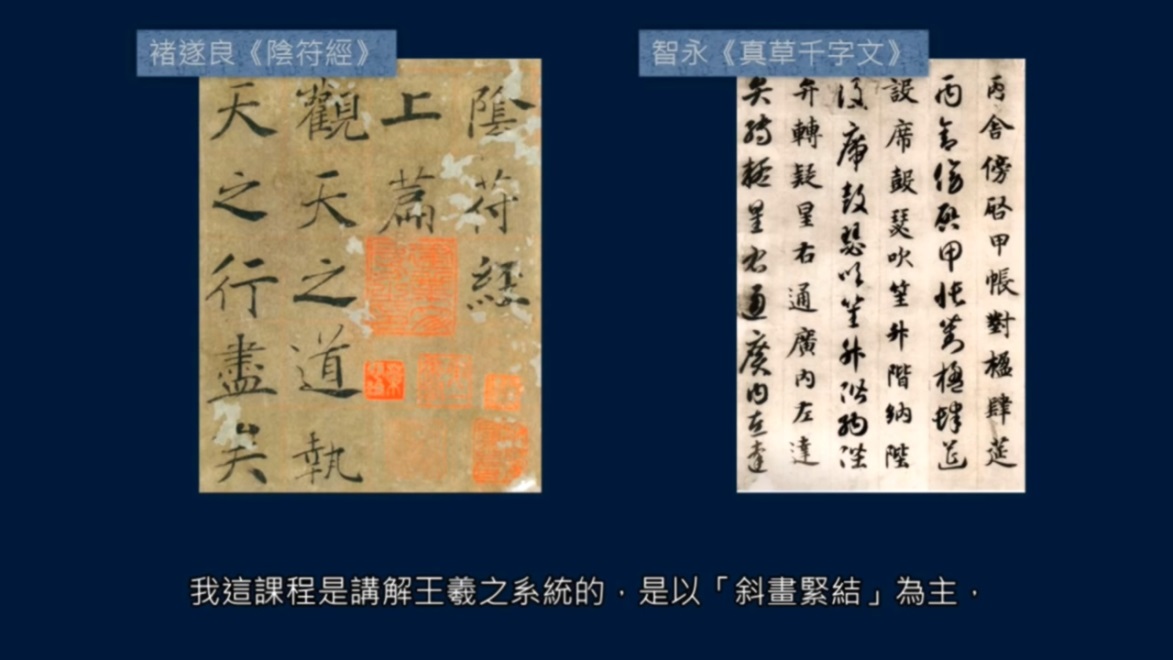 褚遂良《陰符經》
陰符經
上篇
觀天之道執
天之行盡矣
智永《真草千字文》
丙舍傍啓甲帳對楹肆筵
丙舍傍啓甲帳對楹肆筵
設席鼓瑟吹笙升階納陛
設席鼓瑟吹笙升階納陛
弁轉疑星右通廣內左達
弁轉疑星右通廣內左達
我這課程是講解王羲之系統的，是以「斜畫緊結」為主，